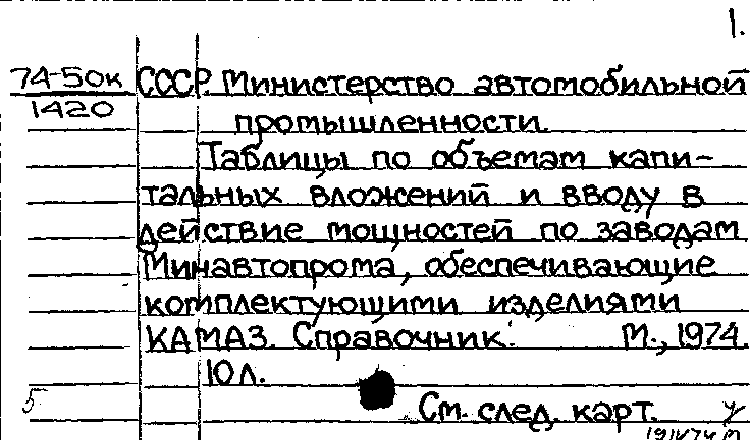 1.
74-50к СССР Министерство автомобильной
1420 промышленности.
Таблицы по объемам капи-
тальных вложений и вводу в
действие мощностей по заводам
Минавтопрома, обеспечивающие
комплектующими изделиями
КАМАЗ. Справочник. М., 1974.
10 л.
5 См. след. карт.